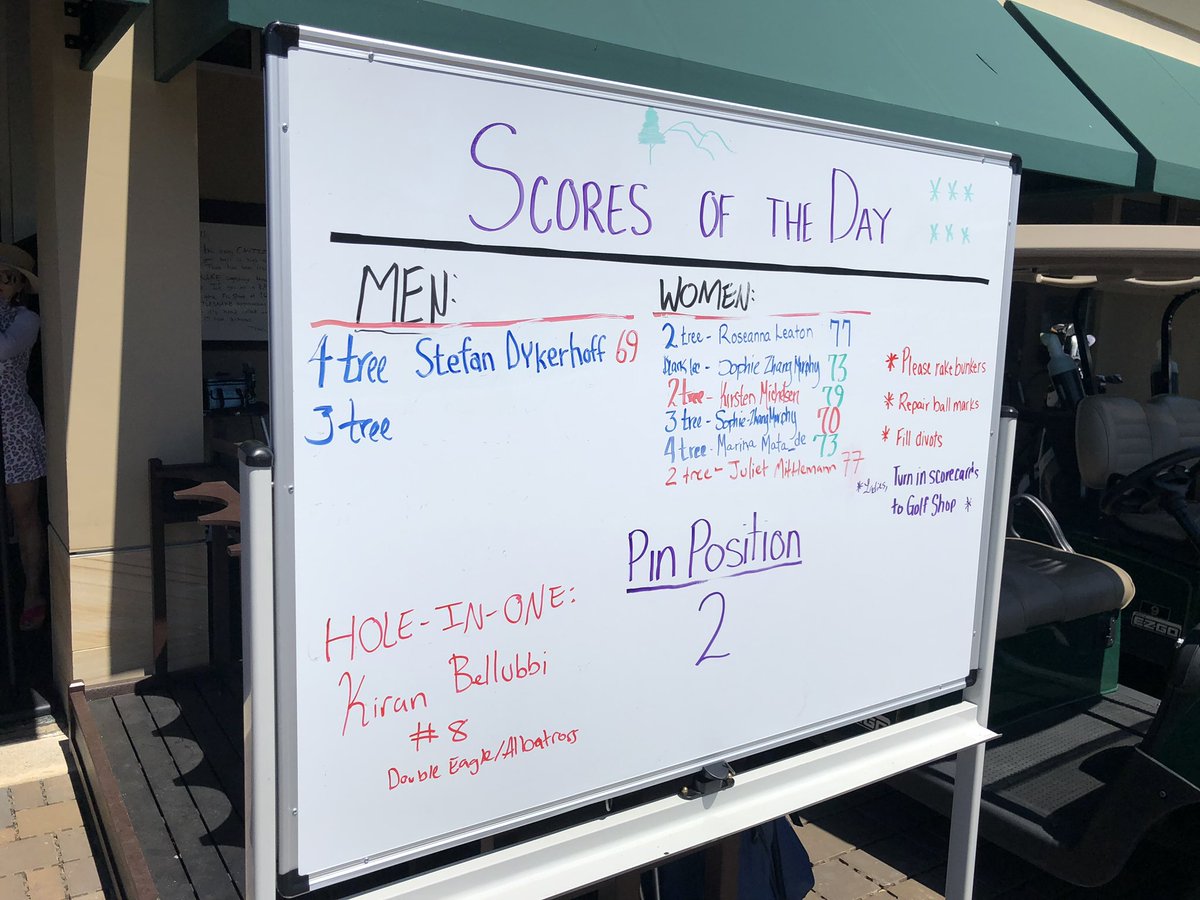 SCORES OF THE DAY
MEN:
4 tree Stefan Dykerhoff 69
3 tree
WOMEN:
2 tree - Roseanna Leaton 77
- Sophie Zhang Murphy 73
2 tree - Kirsten Michelsen 79
3 tree - Sophie-Zhang Murphy 70
4 tree - Marina Mata_de 73
2 tree - Juliet Mittlemann 77
* Please rake bunkers
* Repair ball marks
* Fill divots
* Ladies, Turn in scorecards
to Golf Shop *
PIN POSITION
2
HOLE-IN-ONE:
Kiran Bellubbi
#8
Double Eagle/Albatross
EZGO